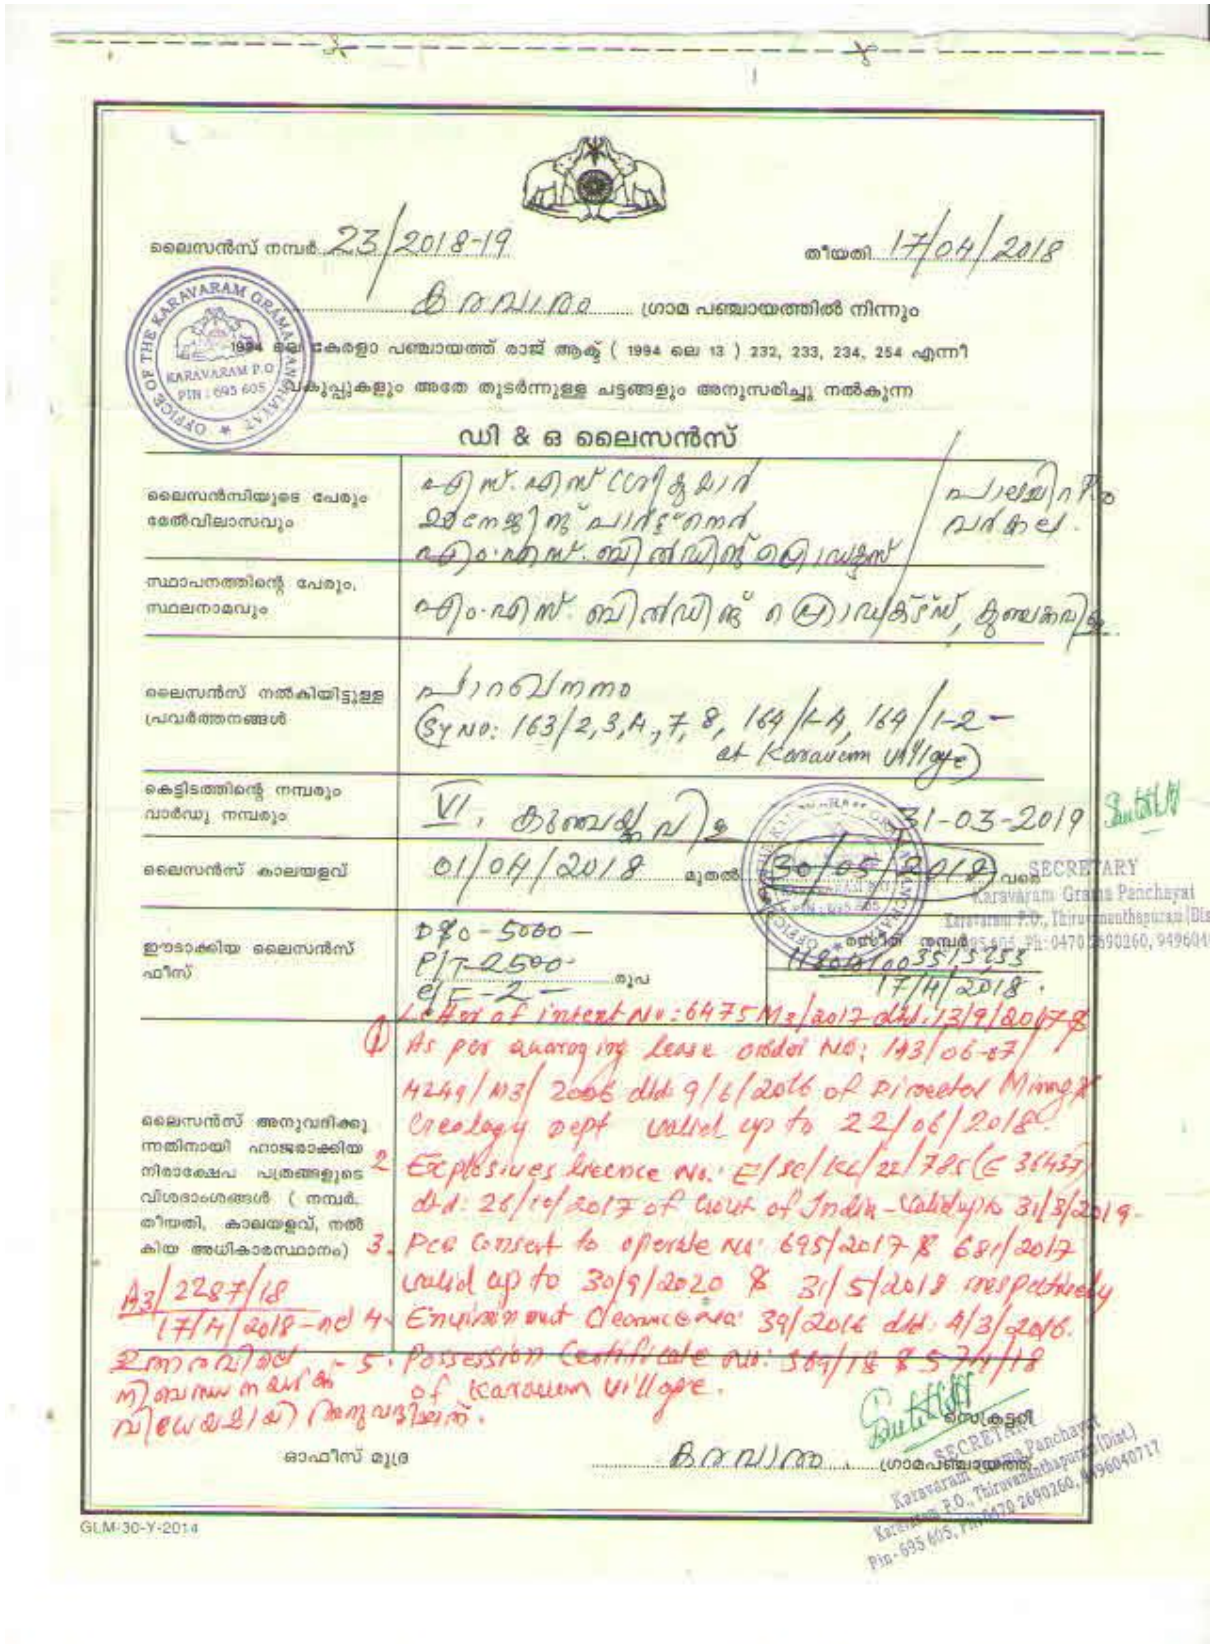 ലൈസൻസ് നമ്പർ 23/2018-19
തീയതി 17/04/2018
കരവാരം ഗ്രാമ പഞ്ചായത്തിൽ നിന്നും
OFFICE OF THE KARAVARAM GRAMA PANCHAYAT
KARAVARAM P.O
PIN : 695 605
1994 ലെ കേരളാ പഞ്ചായത്ത് രാജ് ആക്ട് ( 1994 ലെ 13 ) 232, 233, 234, 254 എന്നീ
വകുപ്പുകളും അതേ തുടർന്നുള്ള ചട്ടങ്ങളും അനുസരിച്ചു നൽകുന്ന
ഡി & ഒ ലൈസൻസ്
ലൈസൻസിയുടെ പേരും
മേൽവിലാസവും
എസ്.എസ് ശ്രീകുമാർ
മാനേജിങ് പാർട്ട്ണർ
എം.എസ്. ബിൽഡിങ്
വർക്കല.
സ്ഥാപനത്തിന്റെ പേരും,
സ്ഥലനാമവും
എം.എസ്. ബിൽഡിങ് പ്രൊഡക്ട്സ്,
ലൈസൻസ് നൽകിയിട്ടുള്ള
പ്രവർത്തനങ്ങൾ
പാറഖനനം
(Sy No: 163/2,3,4,7,8, 164/1-A, 164/1-2 -
at Karavaram Village)
കെട്ടിടത്തിന്റെ നമ്പരും
വാർഡു നമ്പരും
VI,
31-03-2019
ലൈസൻസ് കാലയളവ്
01/04/2018 മുതൽ 30/05/2018 വരെ
SECRETARY
Karavaram Grama Panchayat
Karavaram P.O., Thiruvananthapuram (Dis
695 605, Ph: 0470 2690260, 949604
ഈടാക്കിയ ലൈസൻസ്
ഫീസ്
D&O - 5000 -
P/T - 2500 - രൂപ
C/F - 2 -
രസീത് നമ്പർ
17/4/2018.
Letter of intent No: 6475/M3/2017 dtd. 13/9/2017 &
1 As per quarrying lease order No: 143/06-07/
4249/M3/2006 dtd 9/6/2006 of Director Mining &
Geology Dept valid up to 22/06/2018.
ലൈസൻസ് അനുവദിക്കു
ന്നതിനായി ഹാജരാക്കിയ
നിരാക്ഷേപ പത്രങ്ങളുടെ
വിശദാംശങ്ങൾ ( നമ്പർ,
തീയതി, കാലയളവ്, നൽ
കിയ അധികാരസ്ഥാനം)
2. Explosives licence No: E/SC/KL/22/785 (E 36437)
dtd: 26/10/2017 of Govt of India - Valid upto 31/3/2019-
3. PCB Consent to operate No: 695/2017 & 681/2017
valid up to 30/9/2020 & 31/5/2018 respectively
A3/2287/18
17/4/2018 -
4. Environment Clearance No: 39/2016 dtd: 4/3/2016.
5. Possession Certificate No: 569/18 & 574/18
of Karavaram Village.
ഉത്തരവിലെ
നിബന്ധനകൾക്ക്
വിധേയമായി അനുവദിക്കുന്നത്.
സെക്രട്ടറി
ഓഫീസ് മുദ്ര
കരവാരം ഗ്രാമപഞ്ചായത്ത്
SECRETARY
Karavaram Grama Panchayat
Karavaram P.O., Thiruvananthapuram (Dist.)
Pin- 695 605, Ph: 0470 2690260, 9496040717
GLM-30-Y-2014